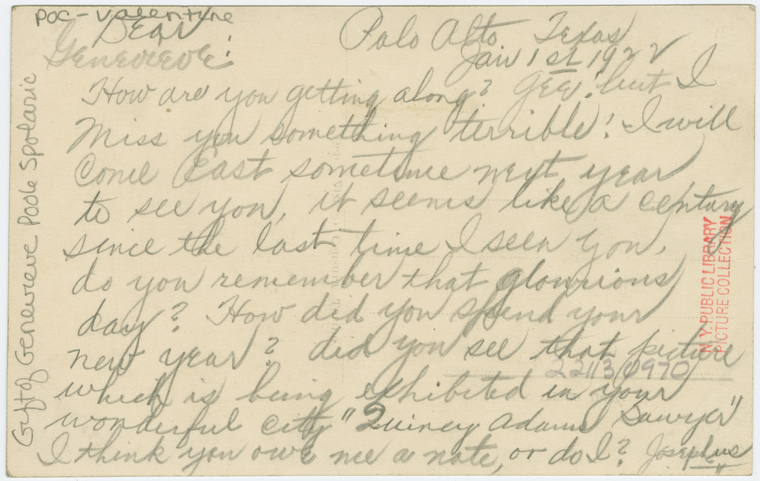 POC - Valentine
Dear Palo Alto Texas
Genevieve: Jan 1st 1922
How are you getting along? GEE! but I
Miss you something terrible! I will
Come East sometime next year
to see you, it seems like a century
since the last time I seen you,
do you remember that glourious
day? How did you spend your
new year? did you see that picture
which is being exhibited in your
wonderful city "Quincy Adams Sawyer"
I think you owe me a note, or do I? Josephus
Gift of Genevieve Poole Spolaric
N.Y. PUBLIC LIBRARY
PICTURE COLLECTION